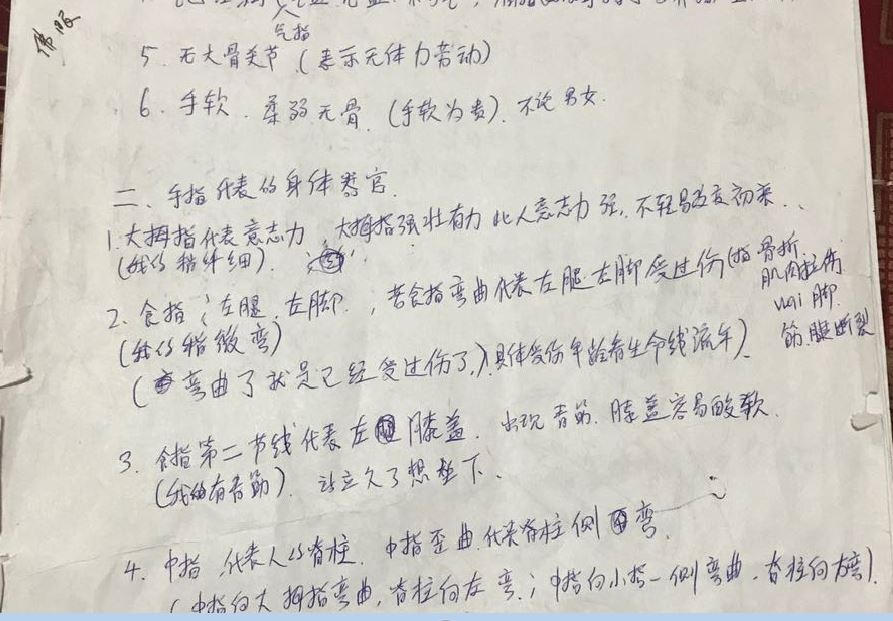 佩服
气指
5. 无大骨关节（表示无体力劳动）
6. 手软．柔弱无骨．（手软为贵）．不论男女．
二、手指代表的身体器官．
1.大拇指代表意志力 大拇指强壮有力 此人意志力强．不轻易改变初衷．
（我的稍纤细）．
2. 食指；左腿．左脚．；若食指弯曲代表左腿左脚受过伤（指骨折
肌肉拉伤
wai脚．
筋．腱断裂
（我的稍微弯）
（弯曲了就是已经受过伤了，）具体受伤年龄看生命线流年）．
3. 食指第二节线代表左膝盖．出现青筋．膝盖容易酸软．
（我的有青筋）．站立久了想坐下、
4. 中指．代表人的脊柱．中指歪曲．代表脊柱侧弯．
（中指向大拇指弯曲，脊柱向左弯．；中指向小指一侧弯曲．脊柱向右弯）．